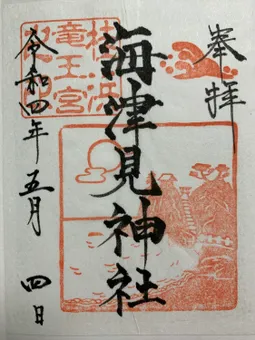 奉拝
海津見神社
令和四年五月四日
桂浜
竜王宮